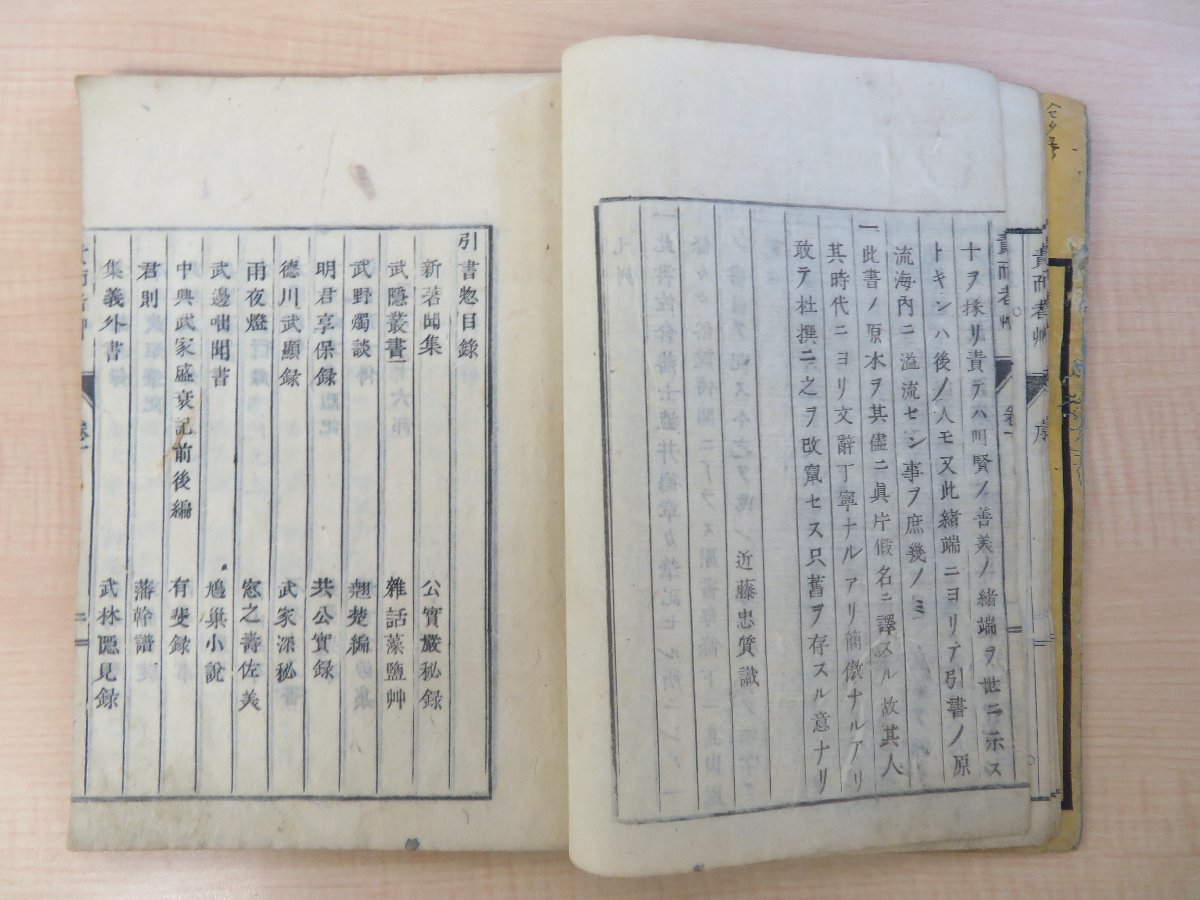 十ヲ採リ責テハ明賢ノ善美ノ緒端ヲ世ニ示ス
トキンハ後ノ人モ又此緒端ニヨリテ引書ノ原
流海内ニ溢流セン事ヲ庶幾ノミ
一此書ノ原本ヲ其儘ニ眞片假名ニ譯スル故其人
其時代ニヨリ文辭丁寧ナルアリ簡傲ナルアリ
敢テ杜撰ニ之ヲ改竄セス只舊ヲ存スル意ナリ
近藤忠質識
引書惣目錄
新著聞集
公實嚴秘録
武隠叢書
雜話藻鹽艸
武野燭談
翹楚編
明君享保録
共公實録
徳川武顯録
武家深秘
雨夜燈
窓之壽佐美
武邊咄聞書
鳩巣小說
中興武家盛衰記前後編
有斐録
君則
藩幹譜
集義外書
武林隠見録